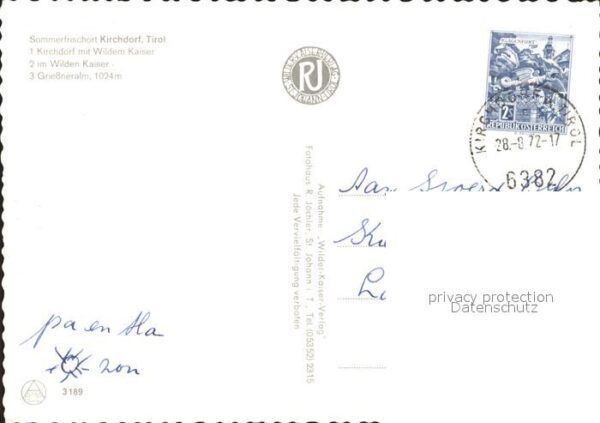 Sommerfrischort Kirchdorf, Tirol
1 Kirchdorf mit Wildem Kaiser
2 im Wilden Kaiser
3 Grießneralm, 1024m
RJ
REPUBLIK ÖSTERREICH
28.-8.72-17
6382
Aufnahme: „Wilder-Kaiser-Verlag"
Fotohaus R. Jöchler, St. Johann i. T., Tel. (05352) 2315
Jede Vervielfältigung verboten
Aan
privacy protection
Datenschutz
pa en Ma
zon
3189